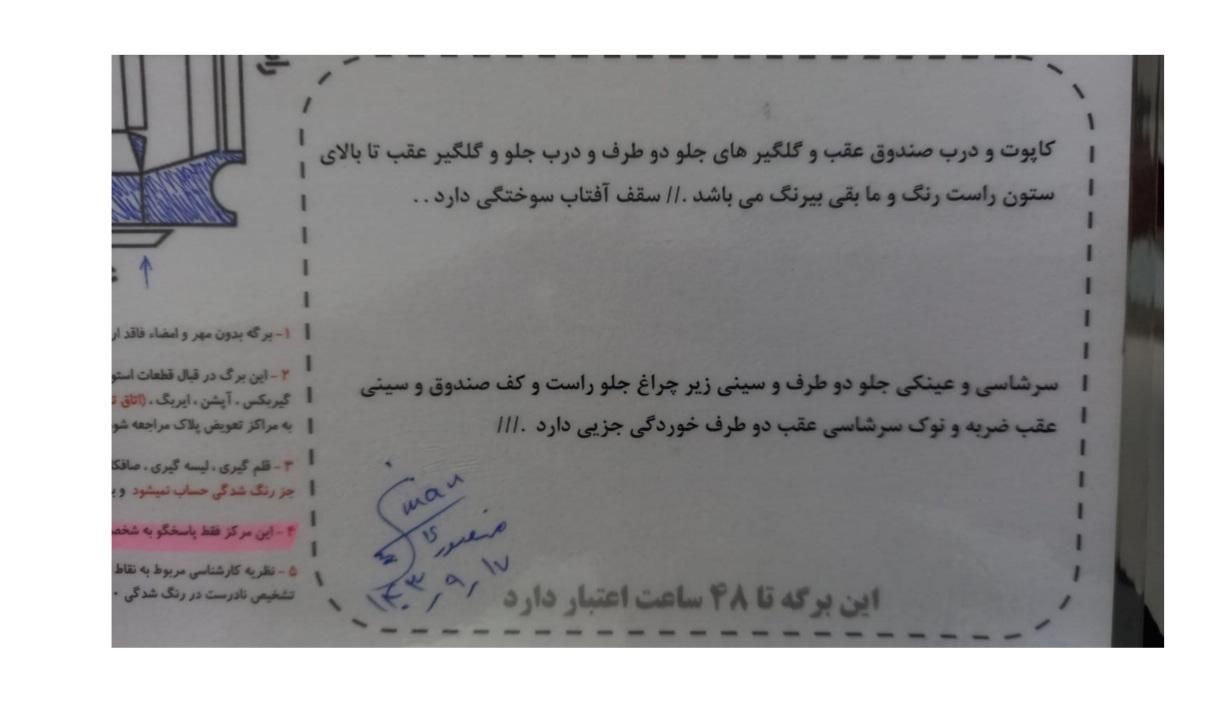 کاپوت و درب صندوق عقب و گلگیر های جلو دو طرف و درب جلو و گلگیر عقب تا بالای
ستون راست رنگ و ما بقی بیرنگ می باشد .// سقف آفتاب سوختگی دارد . .
سرشاسی و عینکی جلو دو طرف و سینی زیر چراغ جلو راست و کف صندوق و سینی
عقب ضربه و نوک سرشاسی عقب دو طرف خوردگی جزیی دارد .///
iman
منصور
۱۴۰۳٫۹٫۱۷
این برگه تا ۴۸ ساعت اعتبار دارد
۱- برگه بدون مهر و امضاء فاقد
۲- این برگ در قبال قطعات
گیربکس ، آپشن ، ایربگ ، (اتاق
به مراکز تعویض پلاک مراجعه
۳- قلم گیری ، لیسه گیری ،
جز رنگ شدگی حساب نمیشود و
۴- این مرکز فقط پاسخگو به
۵- نظریه کارشناسی مربوط به نقاط
تشخیص نادرست در رنگ شدگی